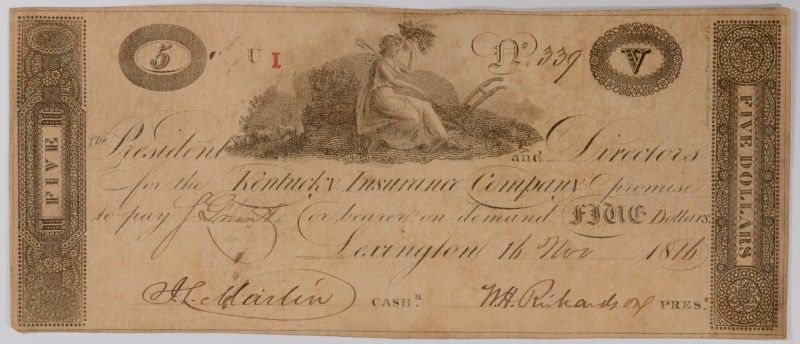 5 U I No. 339 V
FIVE
The President and Directors
for the Kentucky Insurance Company promise
to pay J. Grant or bearer on demand FIVE Dollars
Lexington 16 Nov 1816
J. L. Martin CASHR. W. H. Richardson PREST.
FIVE DOLLARS